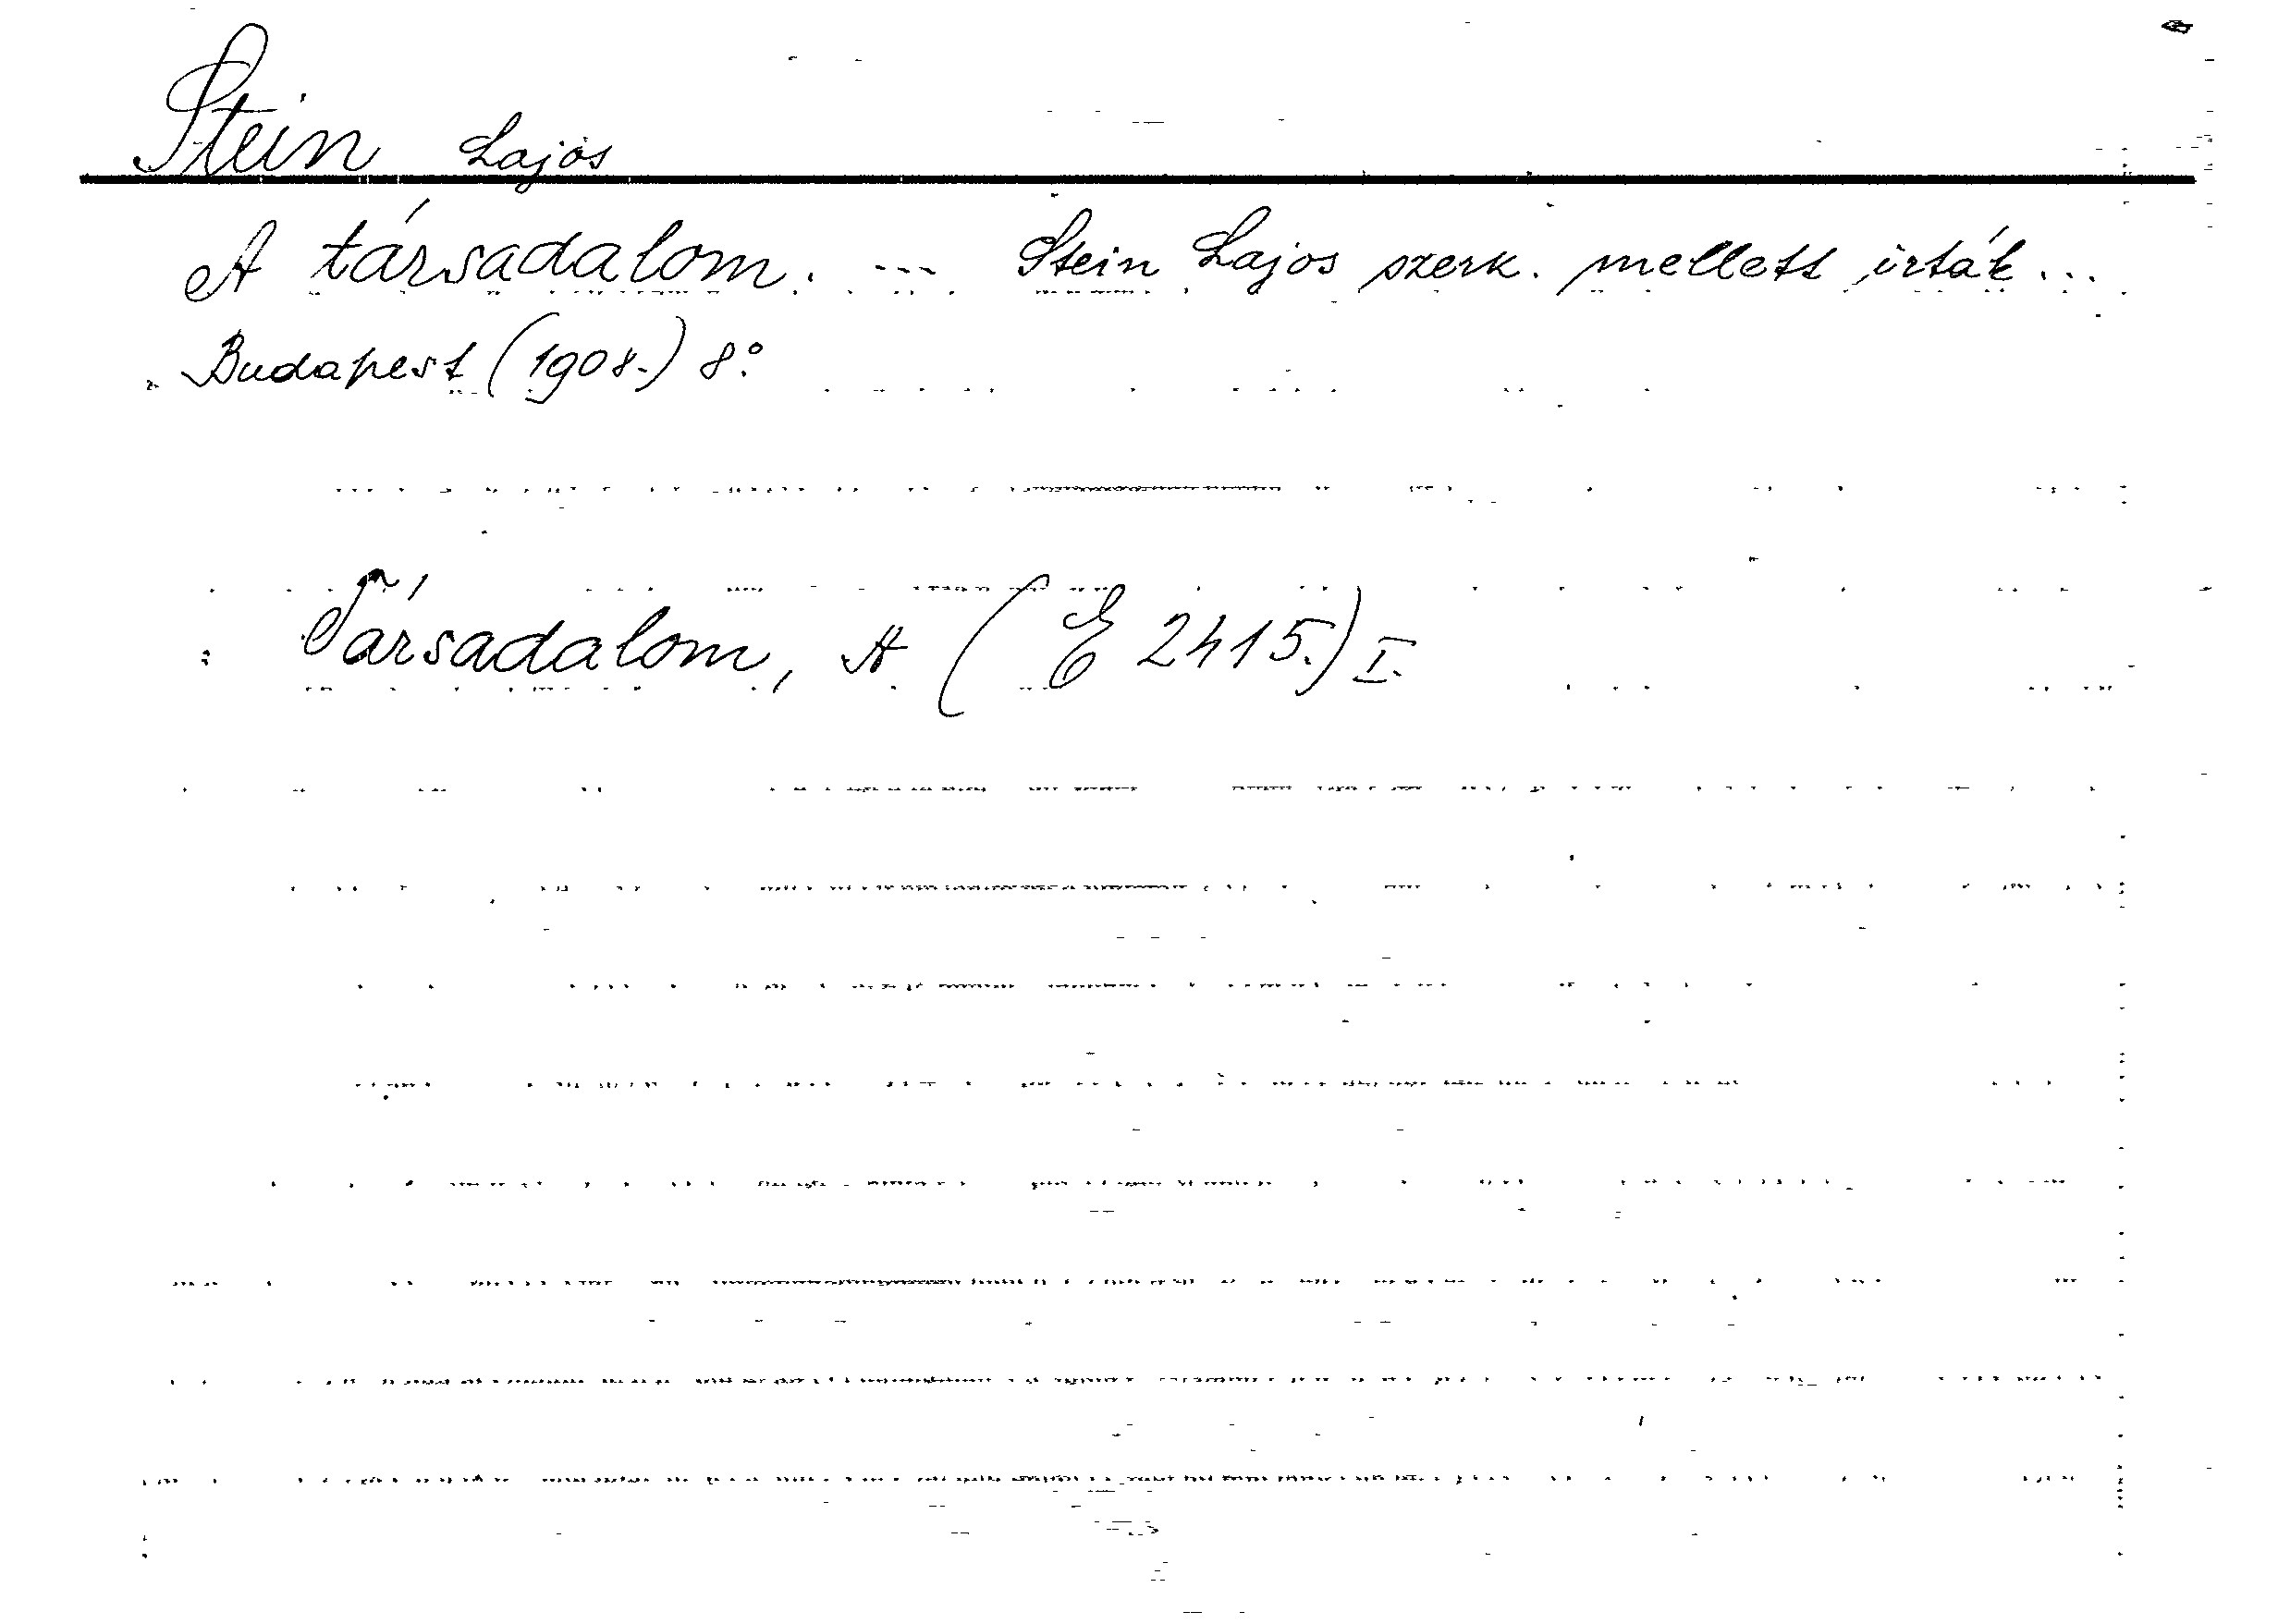 Stein Lajos
A társadalom. --- Stein Lajos szerk. mellett írták...
Budapest (1908.) 8°.
Társadalom, A (E 2415.) I.